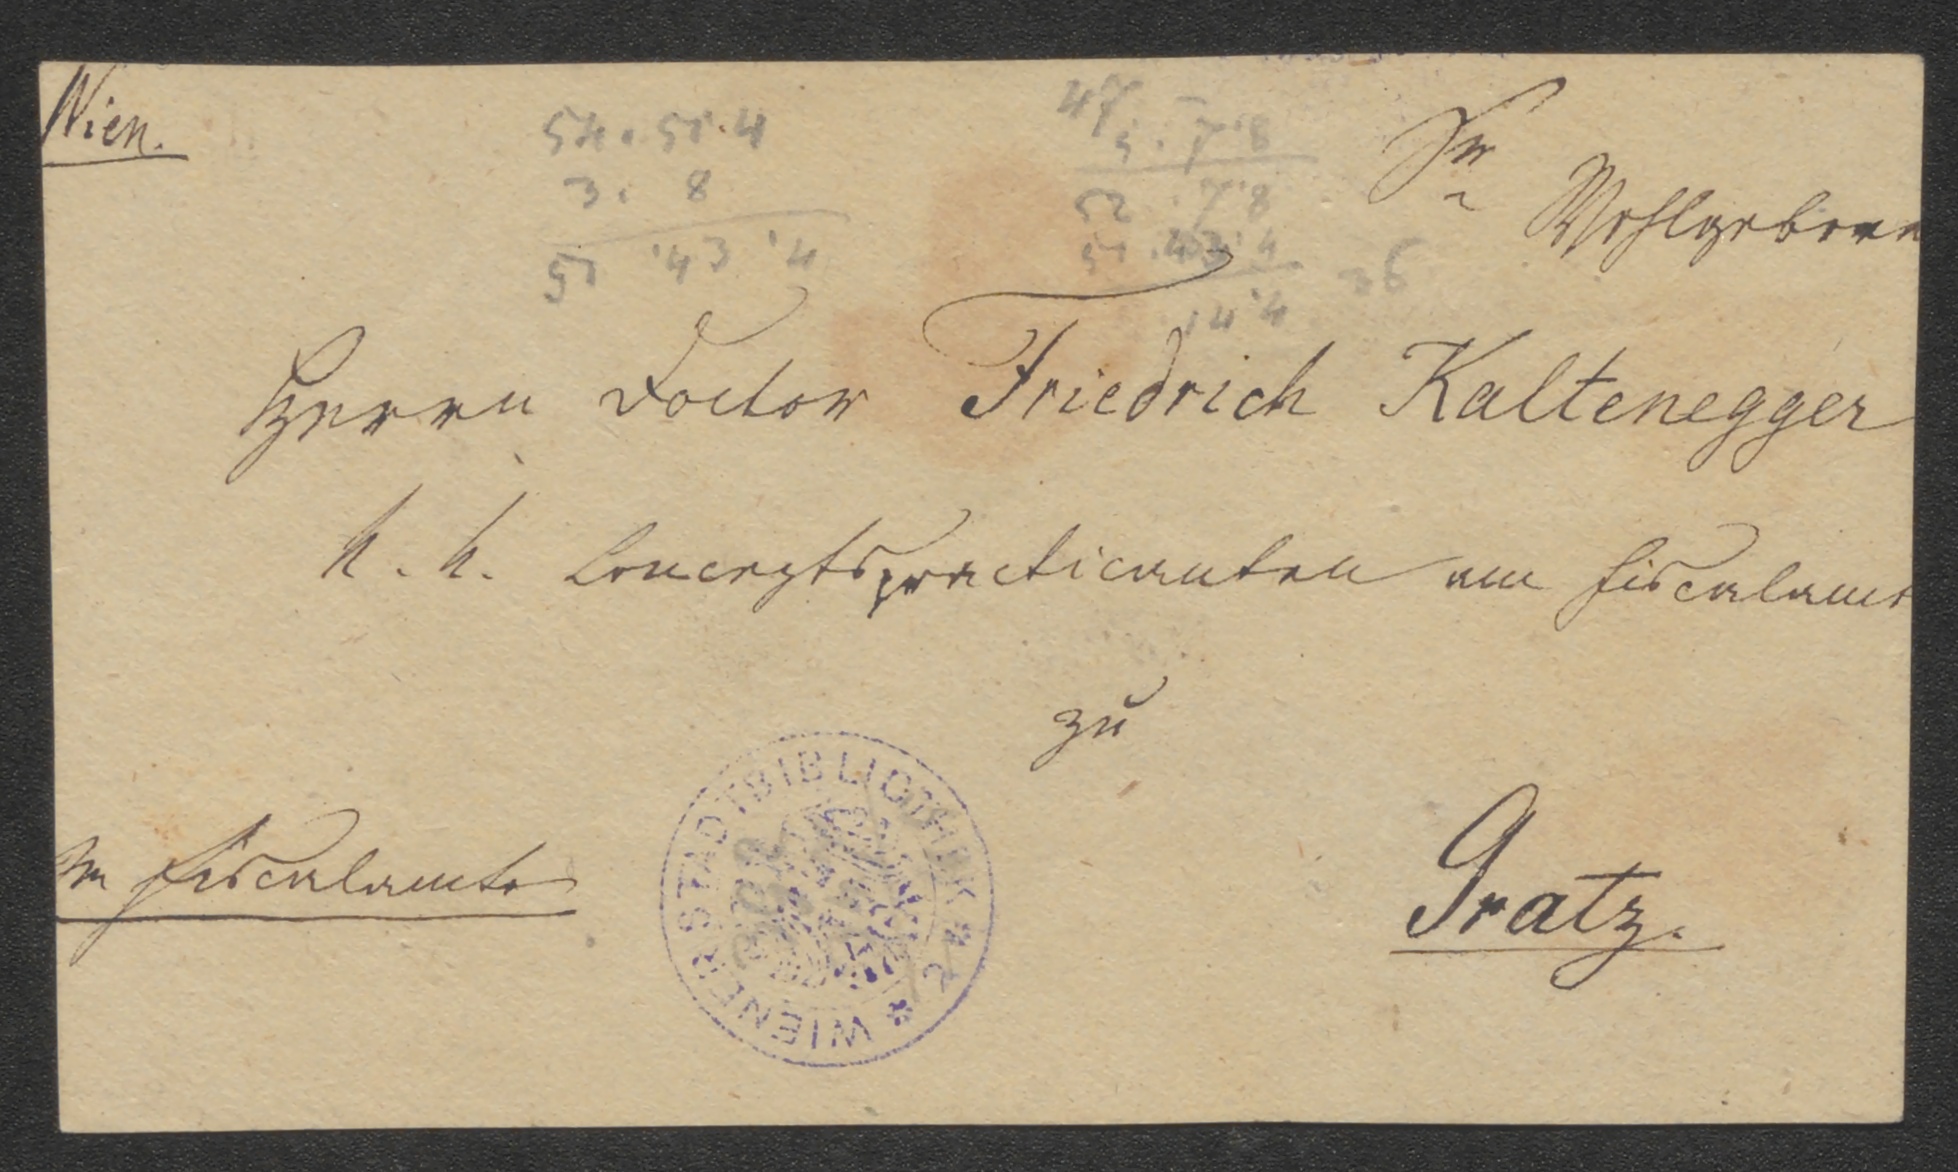 Wien.
54. 51. 4
3. 8
51 '43 '4
47
5. 7'8
52. 7'8
51. 43'4
14'4 36
Sr
Wohlgeboren
Herrn Doctor Friedrich Kaltenegger
k. k. Conceptspracticanten am Fiscalamt
zu
Gratz.
Fiscalamte
WIENER STADTBIBLIOTHEK